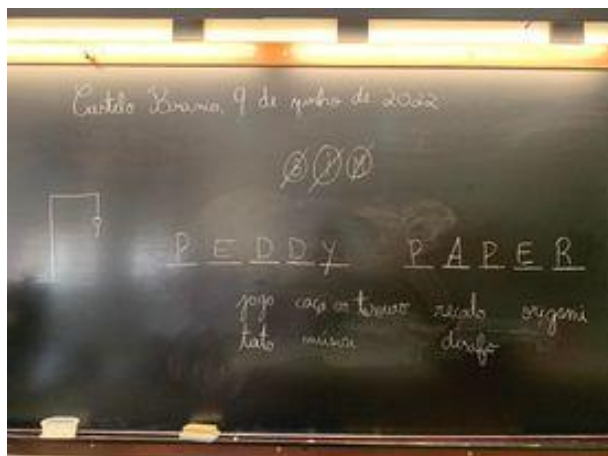 Castelo Branco, 9 de junho de 2022
PEDDY PAPER
jogo caça ao tesouro recado origami
tato música